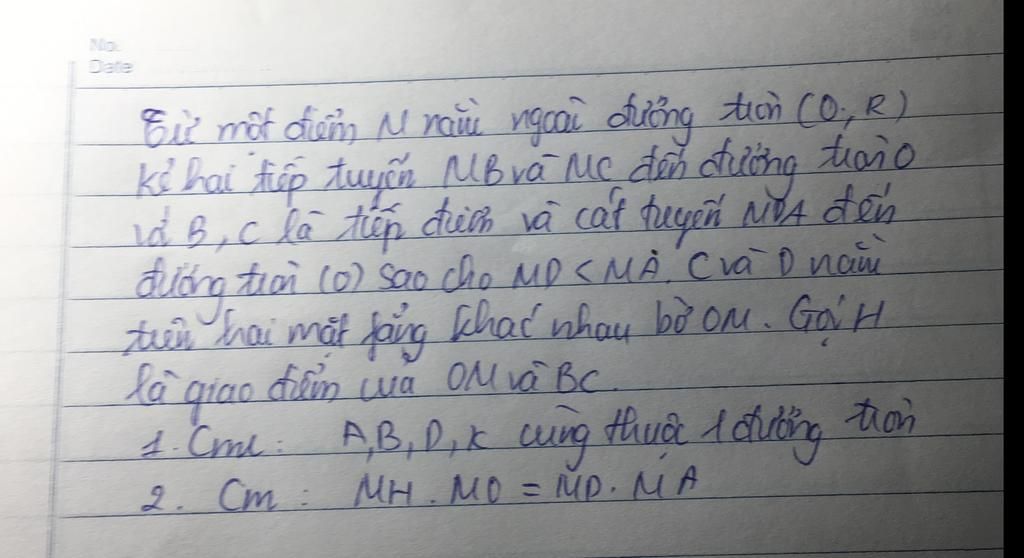 No.
Date
Từ một điểm M nằm ngoài đường tròn (O; R)
kẻ hai tiếp tuyến MB và MC đến đường tròn O
và B, C là tiếp điểm và cát tuyến MDA đến
đường tròn (O) sao cho MD < MA. C và D nằm
trên hai mặt fẳng khác nhau bờ OM. Gọi H
là giao điểm của OM và BC.
1. Cmr: A, B, D, K cùng thuộc 1 đường tròn
2. Cm: MH. MO = MD. MA